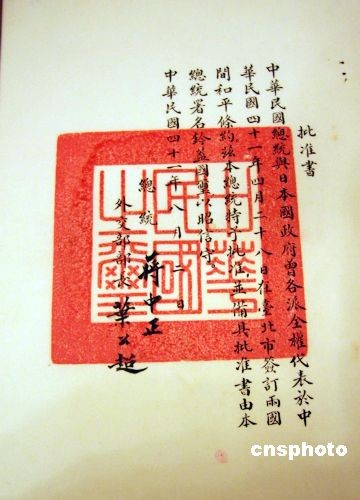 批准書
中華民國總統與日本國政府曾各派全權代表於中
華民國四十一年四月二十八日在臺北市簽訂兩國
間和平條約茲本總統特予批准,並備具批准書由本
總統署名鈐蓋國璽以昭信守
中華民國四十一年八月二日
總統 蔣中正
外交部部長 葉公超
中華
民國
之璽
cnsphoto